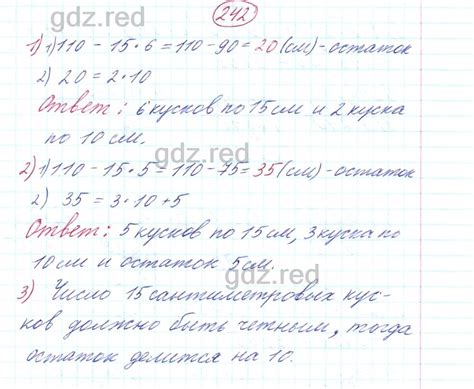 gdz.red
242
1) 1) 110 - 15 · 6 = 110 - 90 = 20 (см) - остаток
2) 20 = 2 · 10
Ответ: 6 кусков по 15 см и 2 куска
по 10 см.
gdz.red
2) 1) 110 - 15 · 5 = 110 - 75 = 35 (см) - остаток
2) 35 = 3 · 10 + 5
Ответ: 5 кусков по 15 см, 3 куска по
10 см и остаток 5 см.
gdz.red
3) Число 15 сантиметровых кус-
ков должно быть четным, тогда
остаток делится на 10.
gdz.red